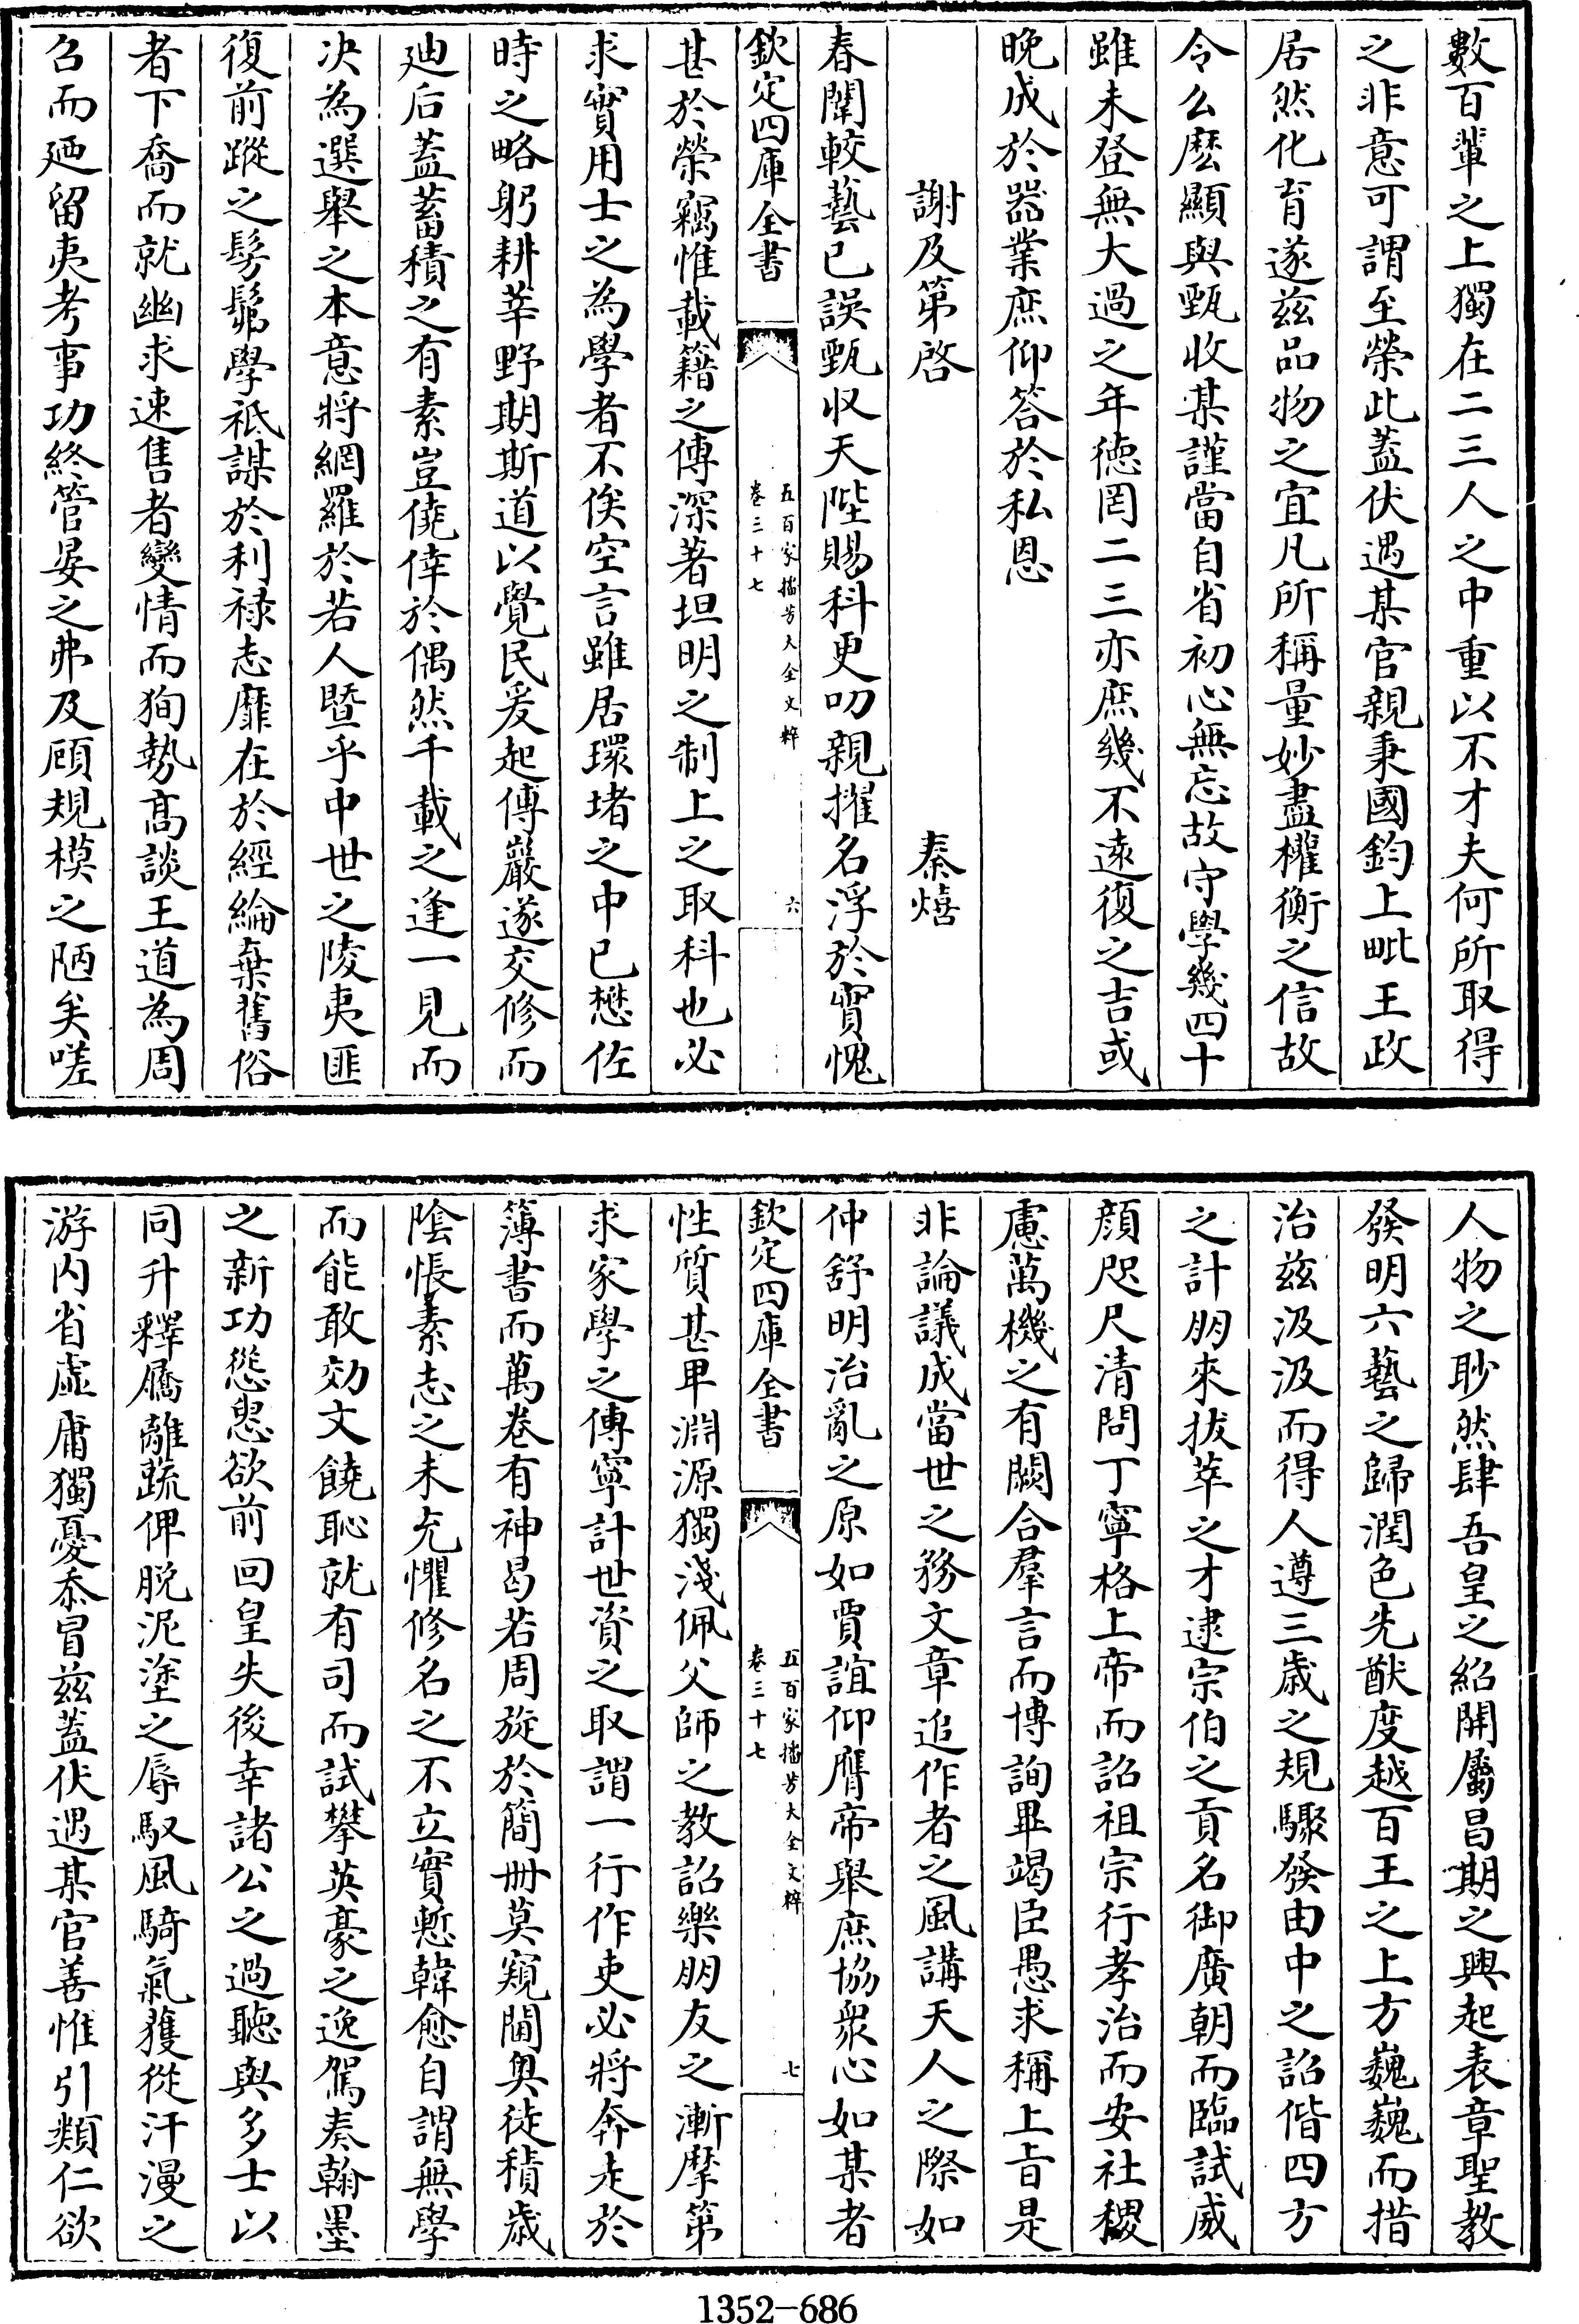 數百輩之上獨在二三人之中重以不才夫何所取得
之非意可謂至榮此蓋伏遇某官親秉國鈞上毗王政
居然化育遂兹品物之宜凡所稱量妙盡權衡之信故
令么麽顯與甄收某謹當自省初心無忘故守學幾四十
雖未登無大過之年德罔二三亦庶幾不遠復之吉或
晚成於器業庶仰答於私恩
謝及第啓
秦熺
春闈較藝已誤甄収天陛賜科更叨親擢名浮於實愧
欽定四庫全書
五百家播芳大全文粹
卷三十七
六
甚於榮竊惟載籍之傳深著坦明之制上之取科也必
求實用士之為學者不俟空言雖居環堵之中已懋佐
時之略躬耕莘野期斯道以覺民爰起傅巖遂交修而
廸后蓋蓄積之有素豈僥倖於偶然千載之逢一見而
决為選舉之本意將網羅於若人暨乎中世之陵夷匪
復前蹤之髣髴學祇謀於利禄志靡在於經綸棄舊俗
者下喬而就幽求速售者變情而狥勢髙談王道為周
召而廼留夷考事功終管晏之弗及顧規模之陋矣嗟
人物之眇然肆吾皇之紹開屬昌期之興起表章聖教
發明六藝之歸潤色先猷度越百王之上方巍巍而措
治兹汲汲而得人遵三歳之規驟發由中之詔偕四方
之計朋來拔萃之才逮宗伯之貢名御廣朝而臨試威
顔咫尺清問丁寧格上帝而詔祖宗行孝治而安社稷
慮萬機之有闕合羣言而博詢畢竭臣愚求稱上旨是
非論議成當世之務文章追作者之風講天人之際如
仲舒明治亂之原如賈誼仰膺帝舉庶協衆心如某者
欽定四庫全書
五百家播芳大全文粹
卷三十七
七
性質甚卑淵源獨淺佩父師之教詔樂朋友之漸摩第
求家學之傳寧計世資之取謂一行作吏必將奔走於
簿書而萬卷有神曷若周旋於簡册莫窺閫奥徒積歳
陰悵素志之未充懼修名之不立實慙韓愈自謂無學
而能敢効文饒恥就有司而試攀英豪之逸駕奏翰墨
之新功慫恿欲前回皇失後幸諸公之過聽與多士以
同升釋屩離蔬俾脱泥塗之辱馭風騎氣獲從汗漫之
游内省虚庸獨憂忝冒兹蓋伏遇某官善惟引類仁欲
1352-686